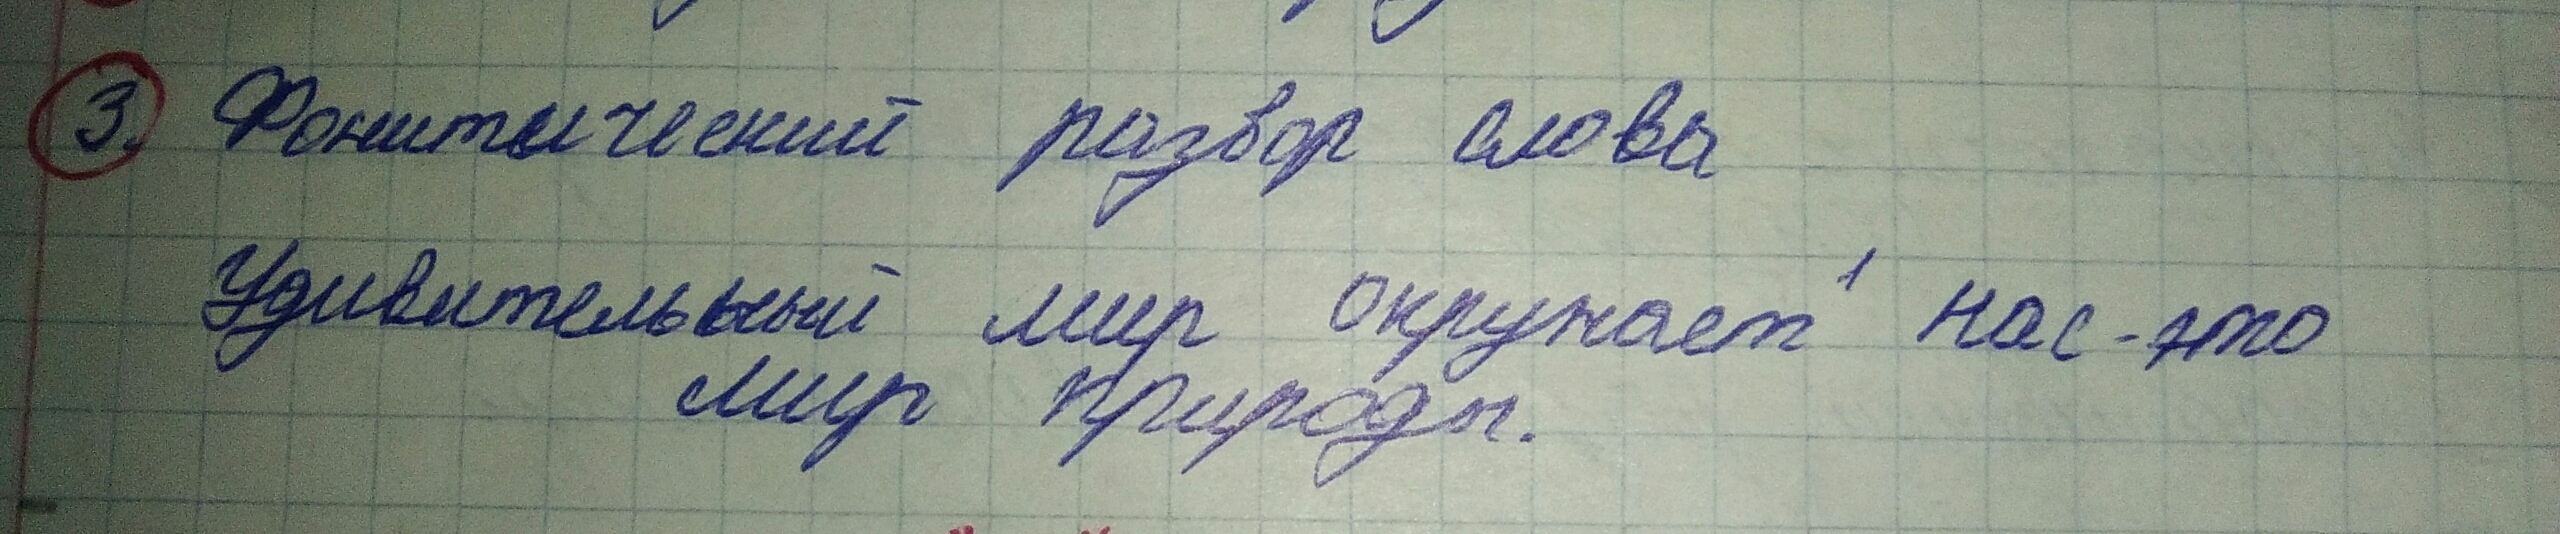 3. Фонитический развор слова
Удивительный мир окружает¹ нас - это
мир природы.